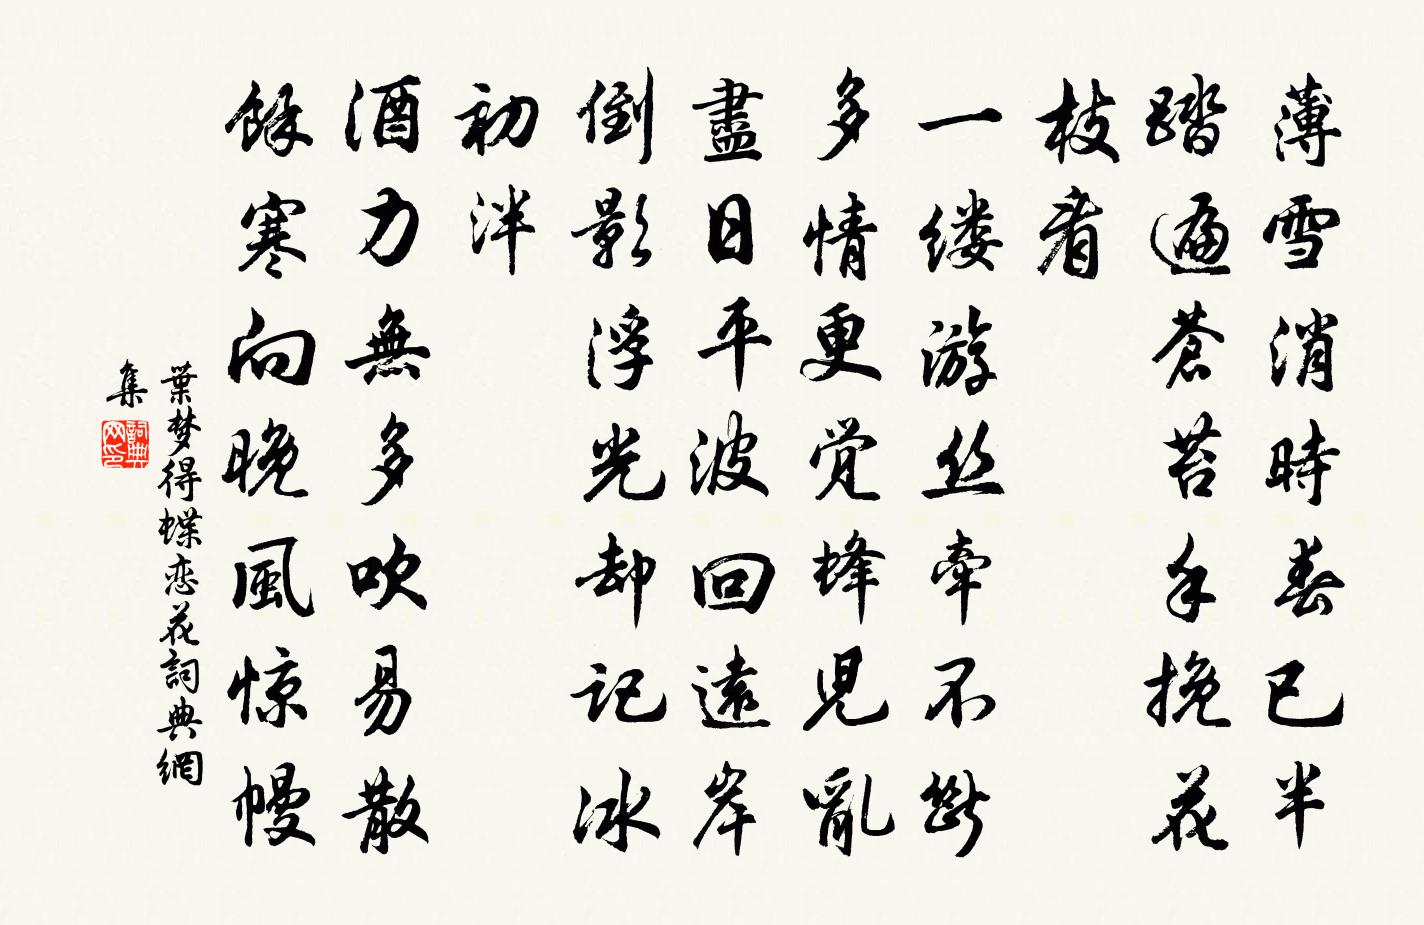 薄雪消時春已半
踏遍蒼苔手挽花
枝看
一缕游丝牽不斷
多情更觉蜂児亂
盡日平波回遠岸
倒影浮光却记冰
初泮
酒力無多吹易散
餘寒向晚風惊幔
葉梦得蝶恋花詞典網
集
詞典网印